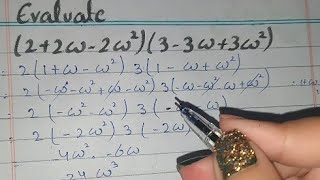 Evaluate
(2+2ω-2ω²)(3-3ω+3ω²)
= 2(1+ω-ω²) 3(1-ω+ω²)
= 2(-ω-ω²+ω-ω²) 3(-ω-ω²-ω+ω²)
= 2(-ω²-ω²) 3(-ω
2(-2ω²) 3(-2ω)
4ω² · -6ω
24 ω³